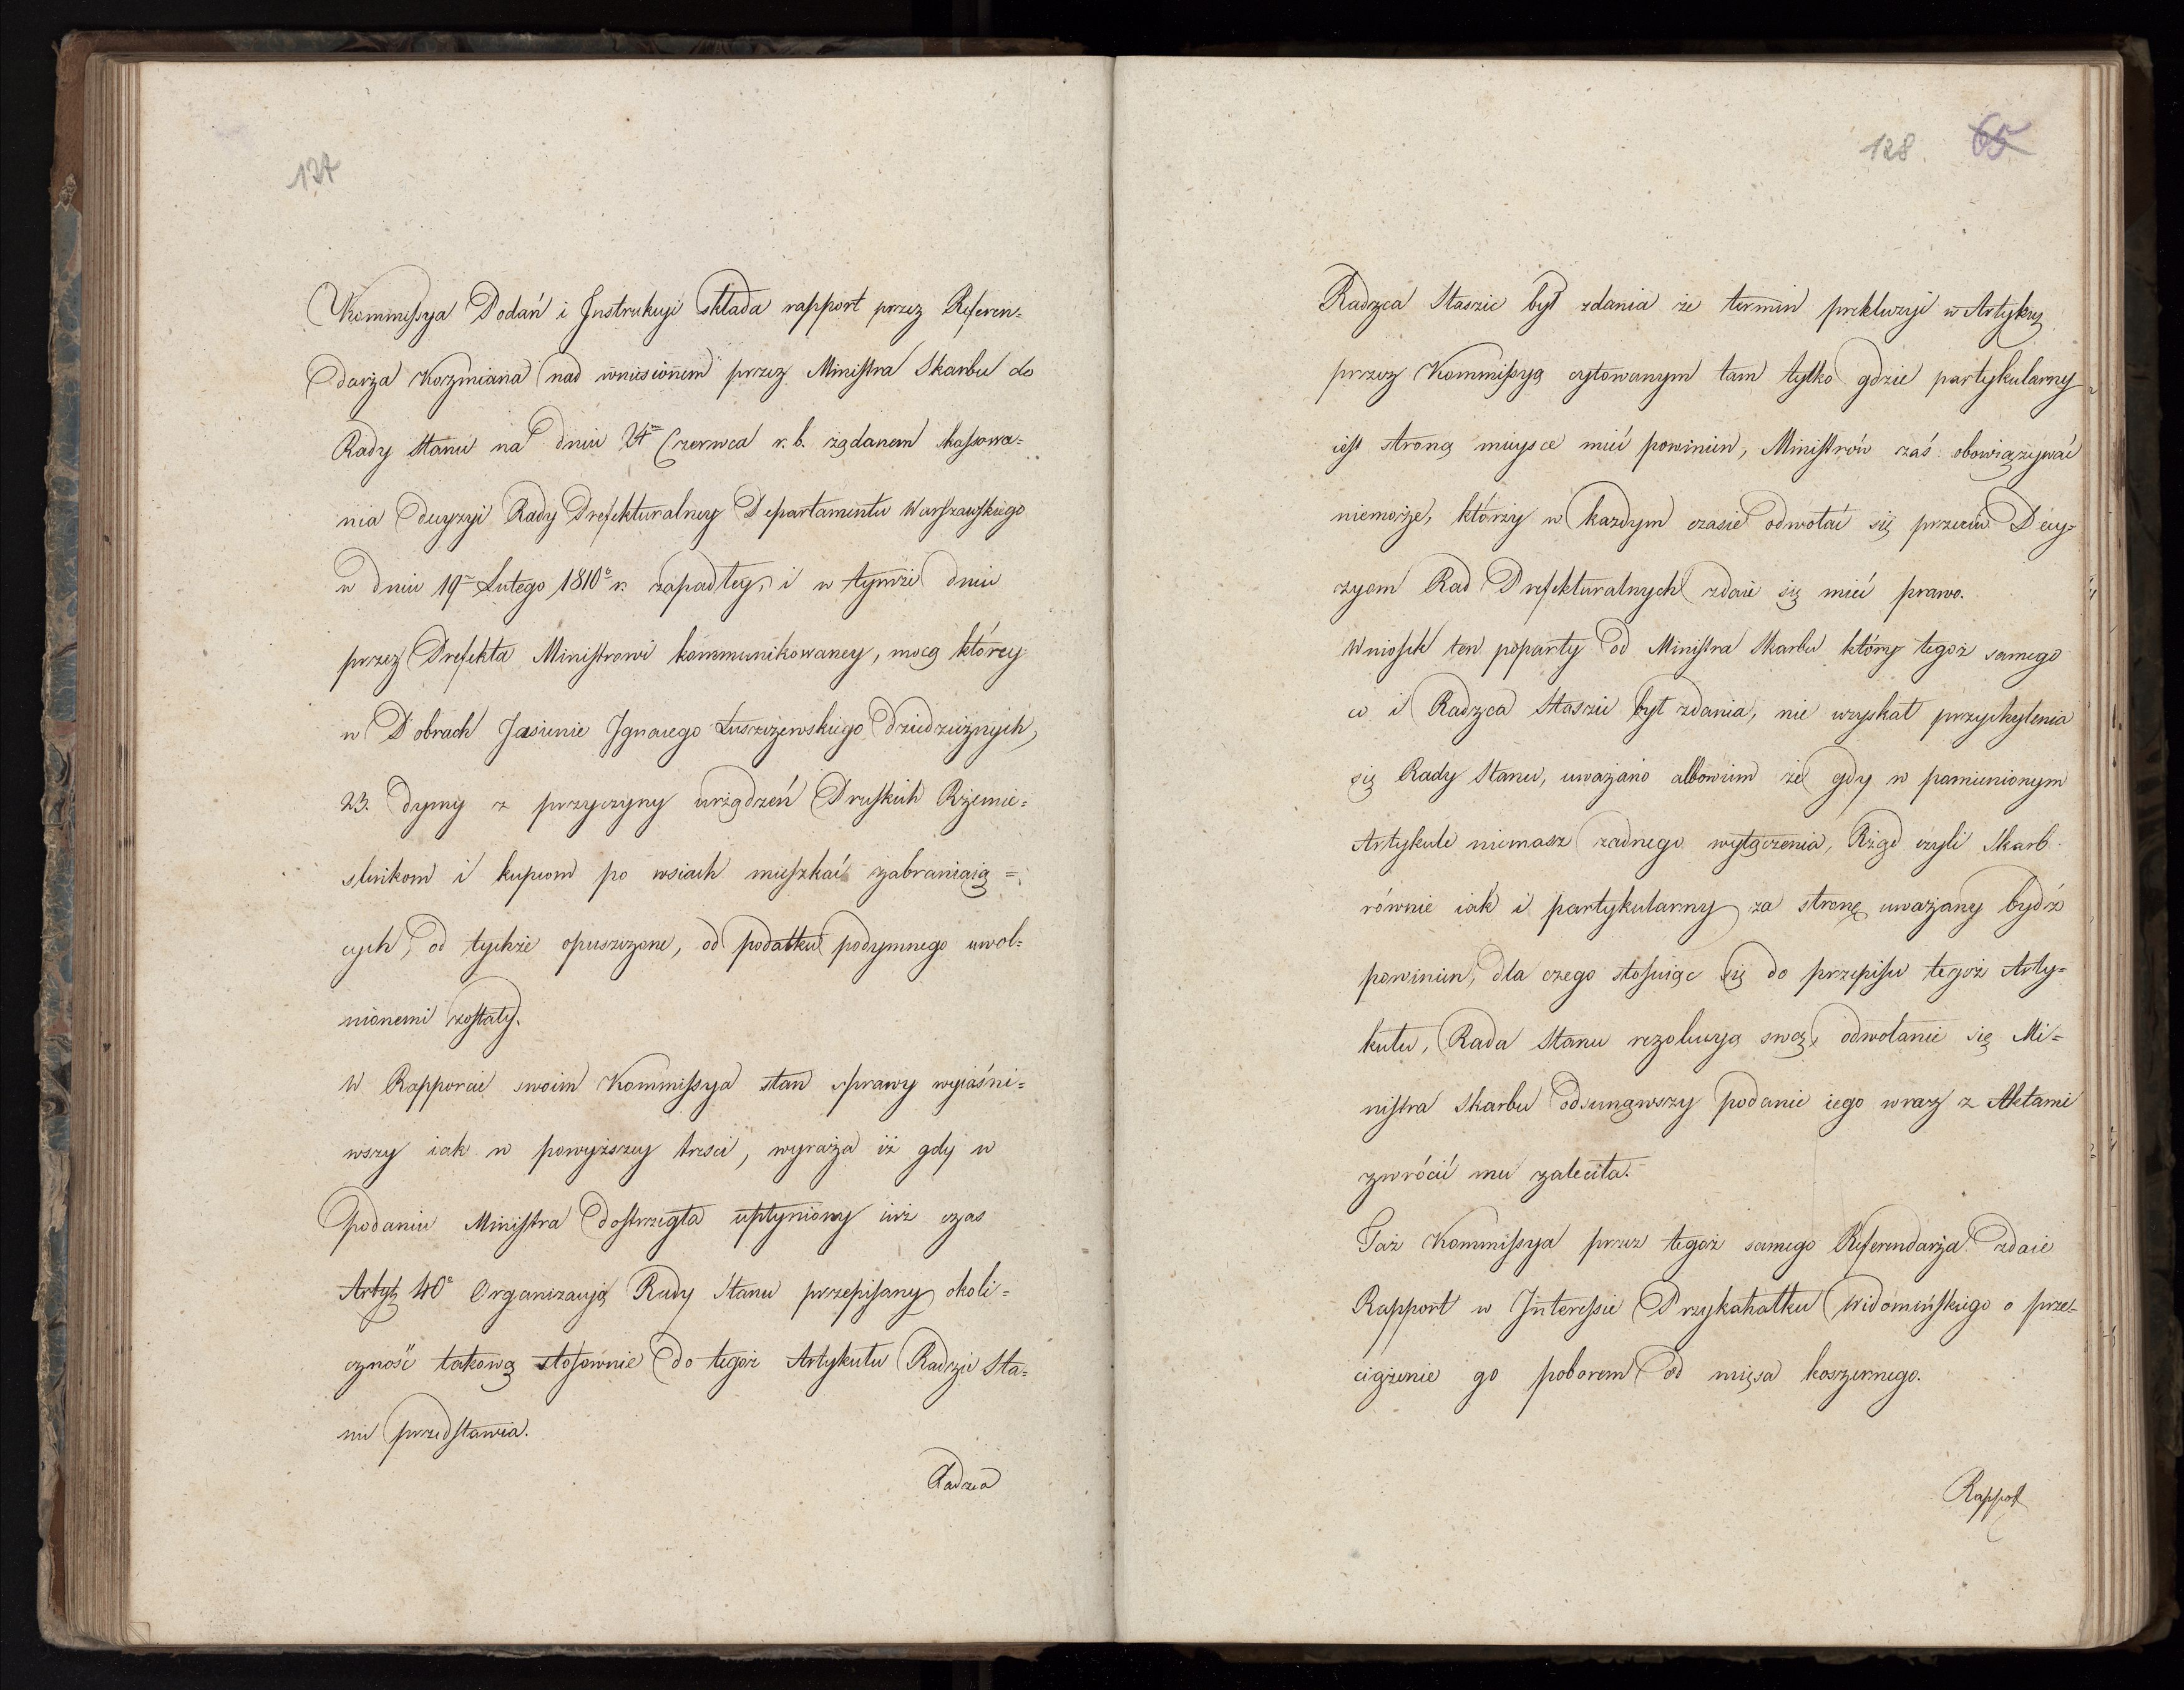 127
Kommissya Podań i Instrukcyi składa rapport przez Referen=
darza Kozmiana nad wniesionem przez Ministra Skarbu do
Rady Stanu na dniu 24m Czerwca r. b. żądanem skassowa=
nia decyzyi Rady Prefekturalney Departamentu Warszawskiego
w dniu 19m Lutego 1810o r. zapadłey, i w tymże dniu
przez Prefekta Ministrowi kommunikowaney, mocą którey
w Dobrach Jasienie Ignacego Łuszczewskiego dziedzicznych,
23. dymy z przyczyny urządzeń Pruskich Rzemie=
slnikom i kupcom po wsiach mieszkać zabraniaią=
cych, od tychże opuszczone, od podatku podymnego uwol=
nionemi zostały.
W Rapporcie swoim Kommissya stan sprawy wyiaśni=
wszy iak w powyższey treści, wyraża iż gdy w
podaniu Ministra dostrzegła upłyniony iuż czas
Artyk 40o Organizacyą Rady Stanu przepisany okoli=
czność takową stosownie do tegoż Artykułu Radzie Sta=
nu przedstawia.
Radzca
128. 65
Radzca Staszic był zdania że termin prekluzyi w Artykuę
przez Kommissyą cytowanym tam tylko gdzie partykularny
iest stroną mieysce mieć powinien, Ministrów zaś obowiązywać
niemoże, którzy w każdym czasie odwołać się przeciw Decy=
zyom Rad Prefekturalnych zdaie się mieć prawo.
Wniosek ten poparty od Ministra Skarbu który tegoż samego
co i Radzca Staszic był zdania, nie uzyskał przychylenia
się Rady Stanu, uważano albowiem że gdy w pamienionym
Artykule niemasz żadnego wyłączenia, Rząd czyli Skarb
równie iak i partykularny za stronę uważany bydź
powinien, dla czego stosuiąc się do przepisu tegoż Arty=
kułu, Rada Stanu rezolucyą swą, odwołanie się Mi=
nistra Skarbu odsunąwszy podanie iego wraz z Aktami
zwrócić mu zaleciła.
Taż Kommissya przez tegoż samego Referendarza zdaie
Rapport w Interessie Przykahałku Widomińskiego o prze=
ciążenie go poborem od mięsa koszernego.
Rapport